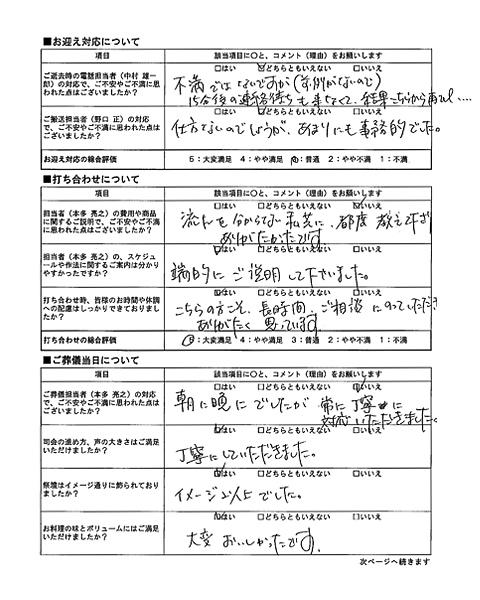 ■お迎え対応について
項目 該当項目に○と、コメント（理由）をお願いします
ご逝去時の電話担当者（中村 雄一郎）の対応で、ご不安やご不満に思われた点はございましたか？
□はい ☑どちらともいえない □いいえ
不満ではないですが（前例がないので）
15分後の連絡待ちも来なくて、結果こちらから再TEL....
ご搬送担当者（野口 正）の対応で、ご不安やご不満に思われた点はございましたか？
□はい □どちらともいえない □いいえ
仕方ないのでしょうが、あまりにも事務的でした。
お迎え対応の総合評価
5：大変満足 4：やや満足 3：普通 2：やや不満 1：不満
■打ち合わせについて
項目 該当項目に○と、コメント（理由）をお願いします
担当者（本多 亮之）の費用や商品に関するご説明で、ご不安やご不満に思われた点はございましたか？
□はい □どちらともいえない ☑いいえ
流れも分からない私共に、都度 教えて下さり
ありがたかったです
担当者（本多 亮之）の、スケジュールや作法に関するご案内は分かりやすかったですか？
☑はい □どちらともいえない □いいえ
端的に ご説明して下さいました。
打ち合わせ時、皆様のお時間や体調への配慮はしっかりできておりましたか？
☑はい □どちらともいえない □いいえ
こちらの方こそ、長時間、ご相談にのっていただき
ありがたく 思っています。
打ち合わせの総合評価
5：大変満足 4：やや満足 3：普通 2：やや不満 1：不満
■ご葬儀当日について
項目 該当項目に○と、コメント（理由）をお願いします
ご葬儀担当者（本多 亮之）の対応で、ご不安やご不満に思われた点はございましたか？
□はい □どちらともいえない ☑いいえ
朝に晩に でしたが 常に丁寧に
対応いただきました
司会の進め方、声の大きさはご満足いただけましたか？
☑はい □どちらともいえない □いいえ
丁寧にしていただきました。
祭壇はイメージ通りに飾られておりましたか？
☑はい □どちらともいえない □いいえ
イメージ以上でした。
お料理の味とボリュームにはご満足いただけましたか？
☑はい □どちらともいえない □いいえ
大変 おいしかったです。
次ページへ続きます